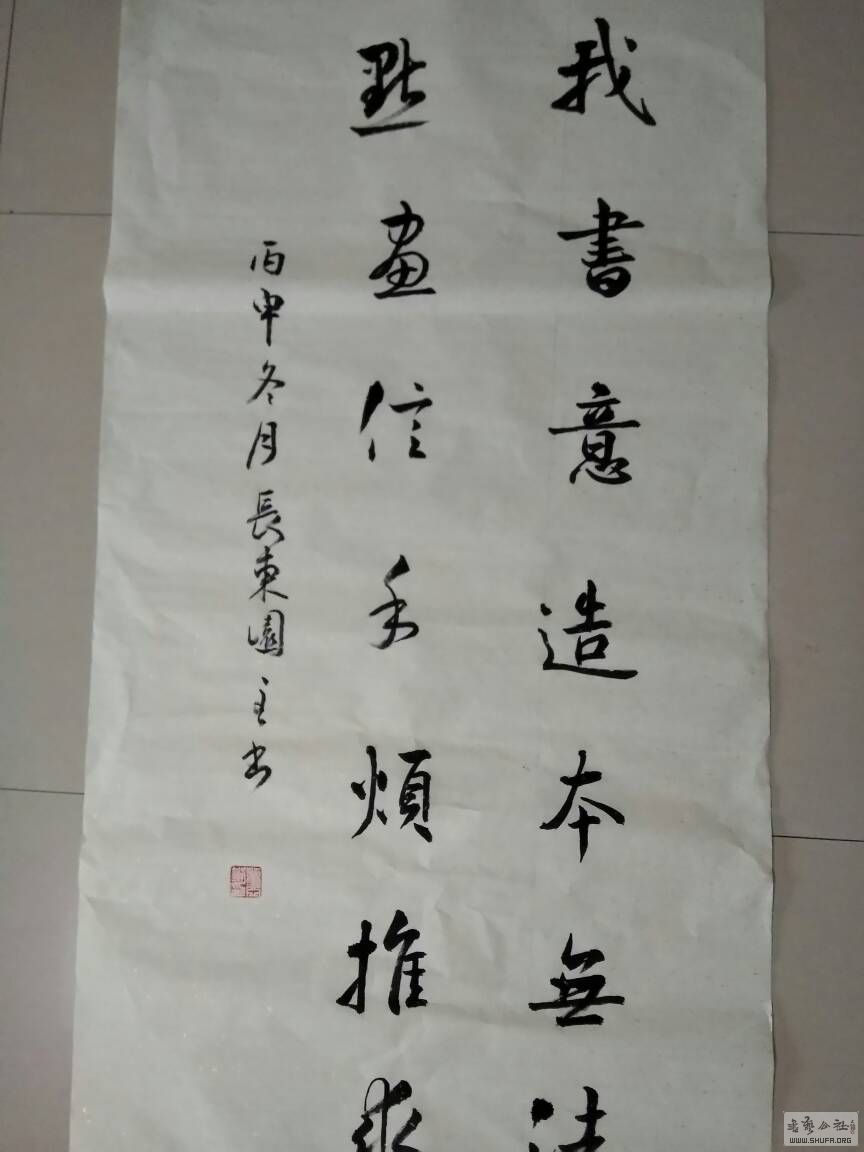 我書意造本無法
點畫信手煩推求
丙申冬月長東園主书
書藝公社
WWW.SHUFA.ORG